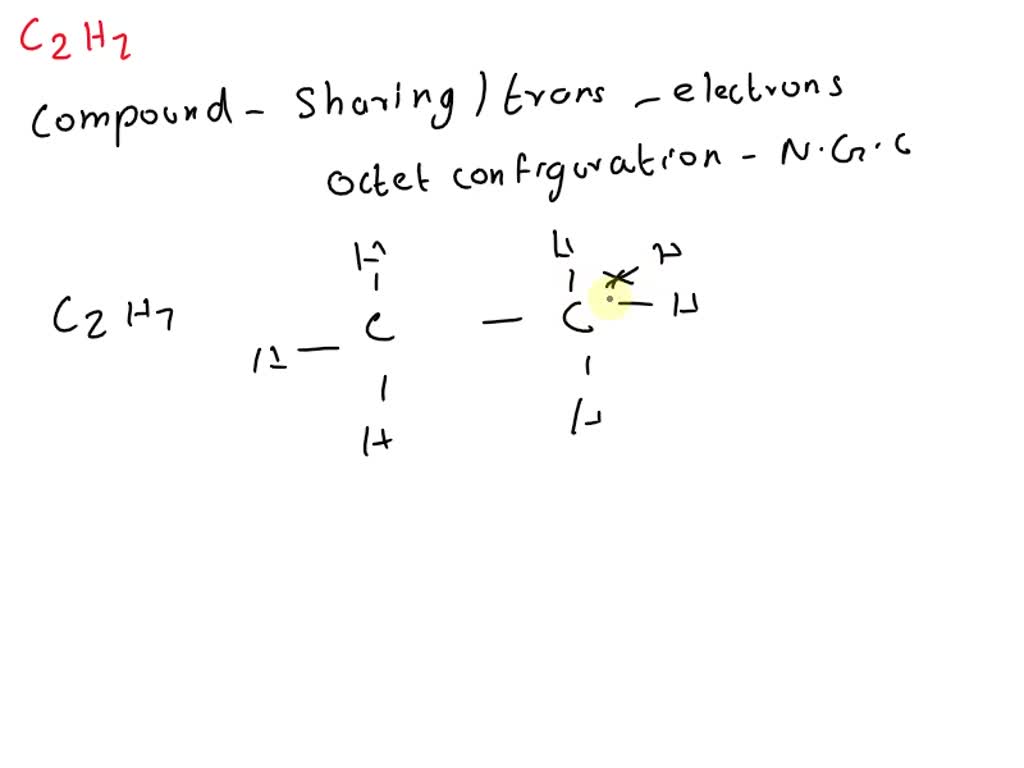 C2H7
Compound - Sharing / trans - electrons
Octet configuration - N.G.C
H H H
C2H7 H - C - C - H
H H